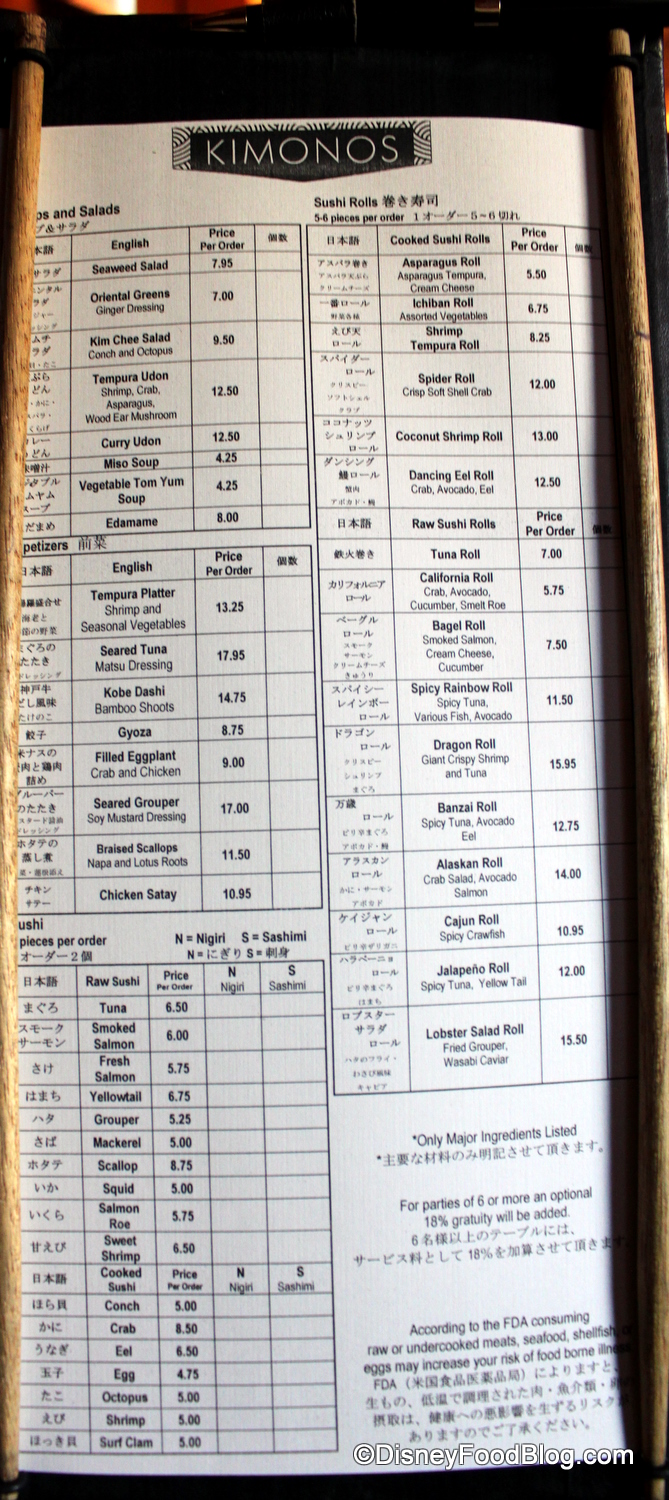 KIMONOS
ps and Salads
プ&サラダ
本語 English Price Per Order 個数
サラダ Seaweed Salad 7.95
Oriental Greens 7.00
Ginger Dressing
Kim Chee Salad 9.50
Conch and Octopus
Tempura Udon 12.50
Shrimp, Crab,
Asparagus,
Wood Ear Mushroom
Curry Udon 12.50
Miso Soup 4.25
Vegetable Tom Yum 4.25
Soup
だまめ Edamame 8.00
petizers 前菜
日本語 English Price Per Order 個数
Tempura Platter 13.25
Shrimp and
Seasonal Vegetables
Seared Tuna 17.95
Matsu Dressing
神戸牛 Kobe Dashi 14.75
Bamboo Shoots
餃子 Gyoza 8.75
Filled Eggplant 9.00
Crab and Chicken
Seared Grouper 17.00
Soy Mustard Dressing
ホタテの Braised Scallops 11.50
蒸し煮 Napa and Lotus Roots
チキン Chicken Satay 10.95
サテー
ushi
pieces per order N = Nigiri S = Sashimi
オーダー2個 N = にぎり S = 刺身
日本語 Raw Sushi Price Per Order N Nigiri S Sashimi
まぐろ Tuna 6.50
スモーク Smoked 6.00
サーモン Salmon
さけ Fresh Salmon 5.75
はまち Yellowtail 6.75
ハタ Grouper 5.25
さば Mackerel 5.00
ホタテ Scallop 8.75
いか Squid 5.00
いくら Salmon Roe 5.75
甘えび Sweet Shrimp 6.50
日本語 Cooked Sushi Price Per Order N Nigiri S Sashimi
ほら貝 Conch 5.00
かに Crab 8.50
うなぎ Eel 6.50
玉子 Egg 4.75
たこ Octopus 5.00
えび Shrimp 5.00
ほっき貝 Surf Clam 5.00
Sushi Rolls 巻き寿司
5-6 pieces per order 1オーダー5~6切れ
日本語 Cooked Sushi Rolls Price Per Order 個数
アスパラ巻き Asparagus Roll 5.50
アスパラ天ぷら Asparagus Tempura,
クリームチーズ Cream Cheese
一番ロール Ichiban Roll 6.75
野菜各種 Assorted Vegetables
えび天 Shrimp 8.25
ロール Tempura Roll
スパイダー
ロール Spider Roll 12.00
クリスピー Crisp Soft Shell Crab
ソフトシェル
クラブ
ココナッツ
シュリンプ Coconut Shrimp Roll 13.00
ロール
ダンシング
鰻ロール Dancing Eel Roll 12.50
蟹肉 Crab, Avocado, Eel
アボカド・鰻
日本語 Raw Sushi Rolls Price Per Order 個数
鉄火巻き Tuna Roll 7.00
カリフォルニア California Roll 5.75
ロール Crab, Avocado,
Cucumber, Smelt Roe
ベーグル
ロール Bagel Roll 7.50
スモーク Smoked Salmon,
サーモン Cream Cheese,
クリームチーズ Cucumber
きゅうり
スパイシー Spicy Rainbow Roll 11.50
レインボー Spicy Tuna,
ロール Various Fish, Avocado
ドラゴン
ロール Dragon Roll 15.95
クリスピー Giant Crispy Shrimp
シュリンプ and Tuna
まぐろ
万歳 Banzai Roll 12.75
ロール Spicy Tuna, Avocado
ピリ辛まぐろ Eel
アボカド・鰻
アラスカン Alaskan Roll 14.00
ロール Crab Salad, Avocado
かに・サーモン Salmon
アボカド
ケイジャン Cajun Roll 10.95
ロール Spicy Crawfish
ピリ辛ザリガニ
ハラペーニョ
ロール Jalapeño Roll 12.00
ピリ辛まぐろ Spicy Tuna, Yellow Tail
はまち
ロブスター
サラダ Lobster Salad Roll 15.50
ロール Fried Grouper,
ハタのフライ・ Wasabi Caviar
わさび風味
キャビア
*Only Major Ingredients Listed
*主要な材料のみ明記させて頂きます。
For parties of 6 or more an optional
18% gratuity will be added.
6名様以上のテーブルには、
サービス料として18%を加算させて頂きます
According to the FDA consuming
raw or undercooked meats, seafood, shellfish,
eggs may increase your risk of food borne illness
FDA(米国食品医薬品局)によりますと、
生もの、低温で調理された肉・魚介類・
摂取は、健康への悪影響を生ずるリスク
ありますのでご了承ください。
©DisneyFoodBlog.com